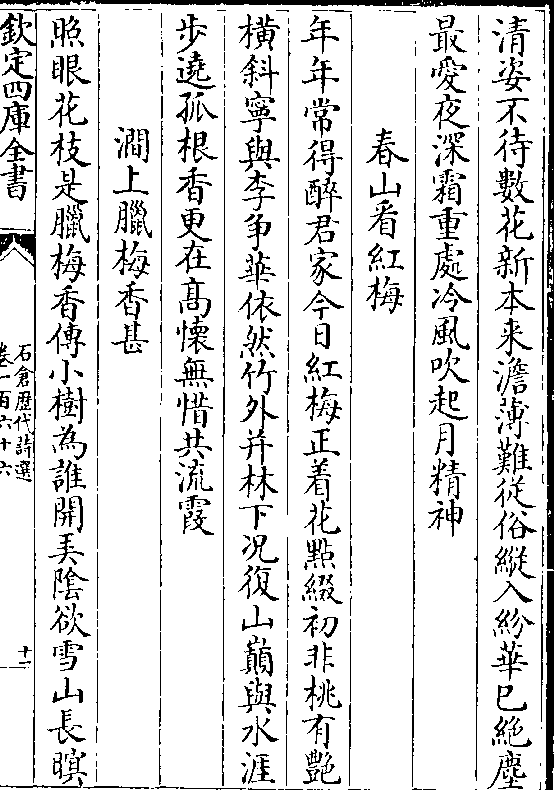 清姿不待數花新本来澹薄難従俗縱入紛華已絶塵
最愛夜深霜重處冷風吹起月精神
春山看紅梅
年年常得醉君家今日紅梅正着花點綴初非桃有艷
横斜寧與李争華依然竹外并林下况復山巔與水涯
步遶孤根香更在髙懷無惜共流霞
澗上臘梅香甚
照眼花枝是臘梅香傳小樹為誰開美隂欲雪山長暝
欽定四庫全書
石倉歴代詩選
卷一百六十六
十一